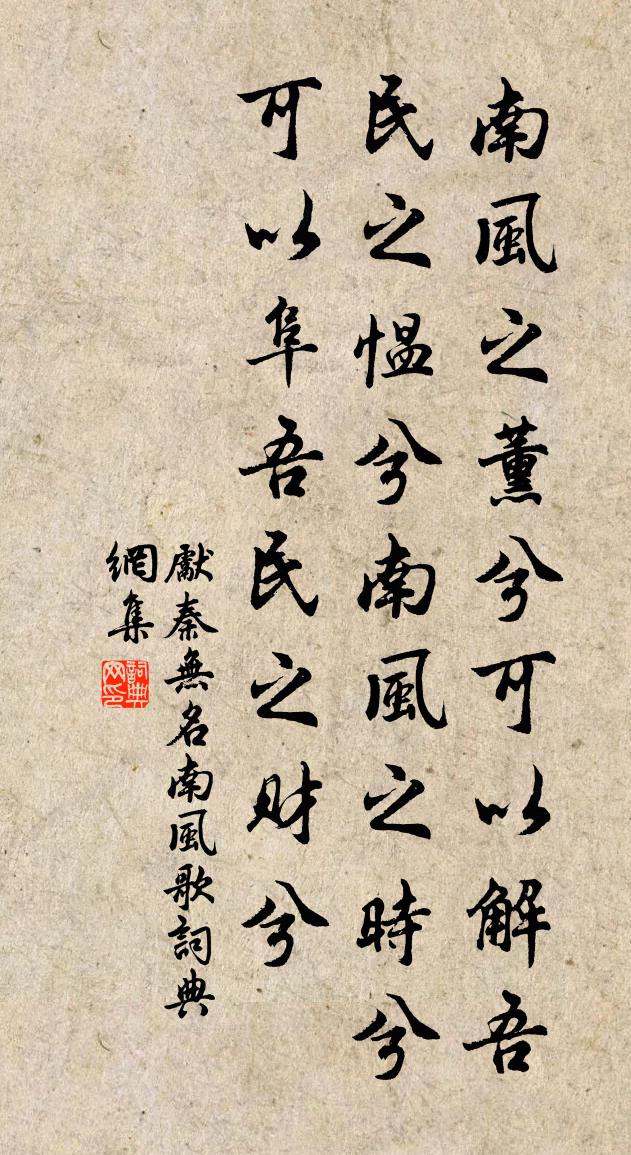 南風之薰兮可以解吾
民之愠兮南風之時兮
可以阜吾民之财兮
獻秦無名南風歌詞典
網集
詞典
网印